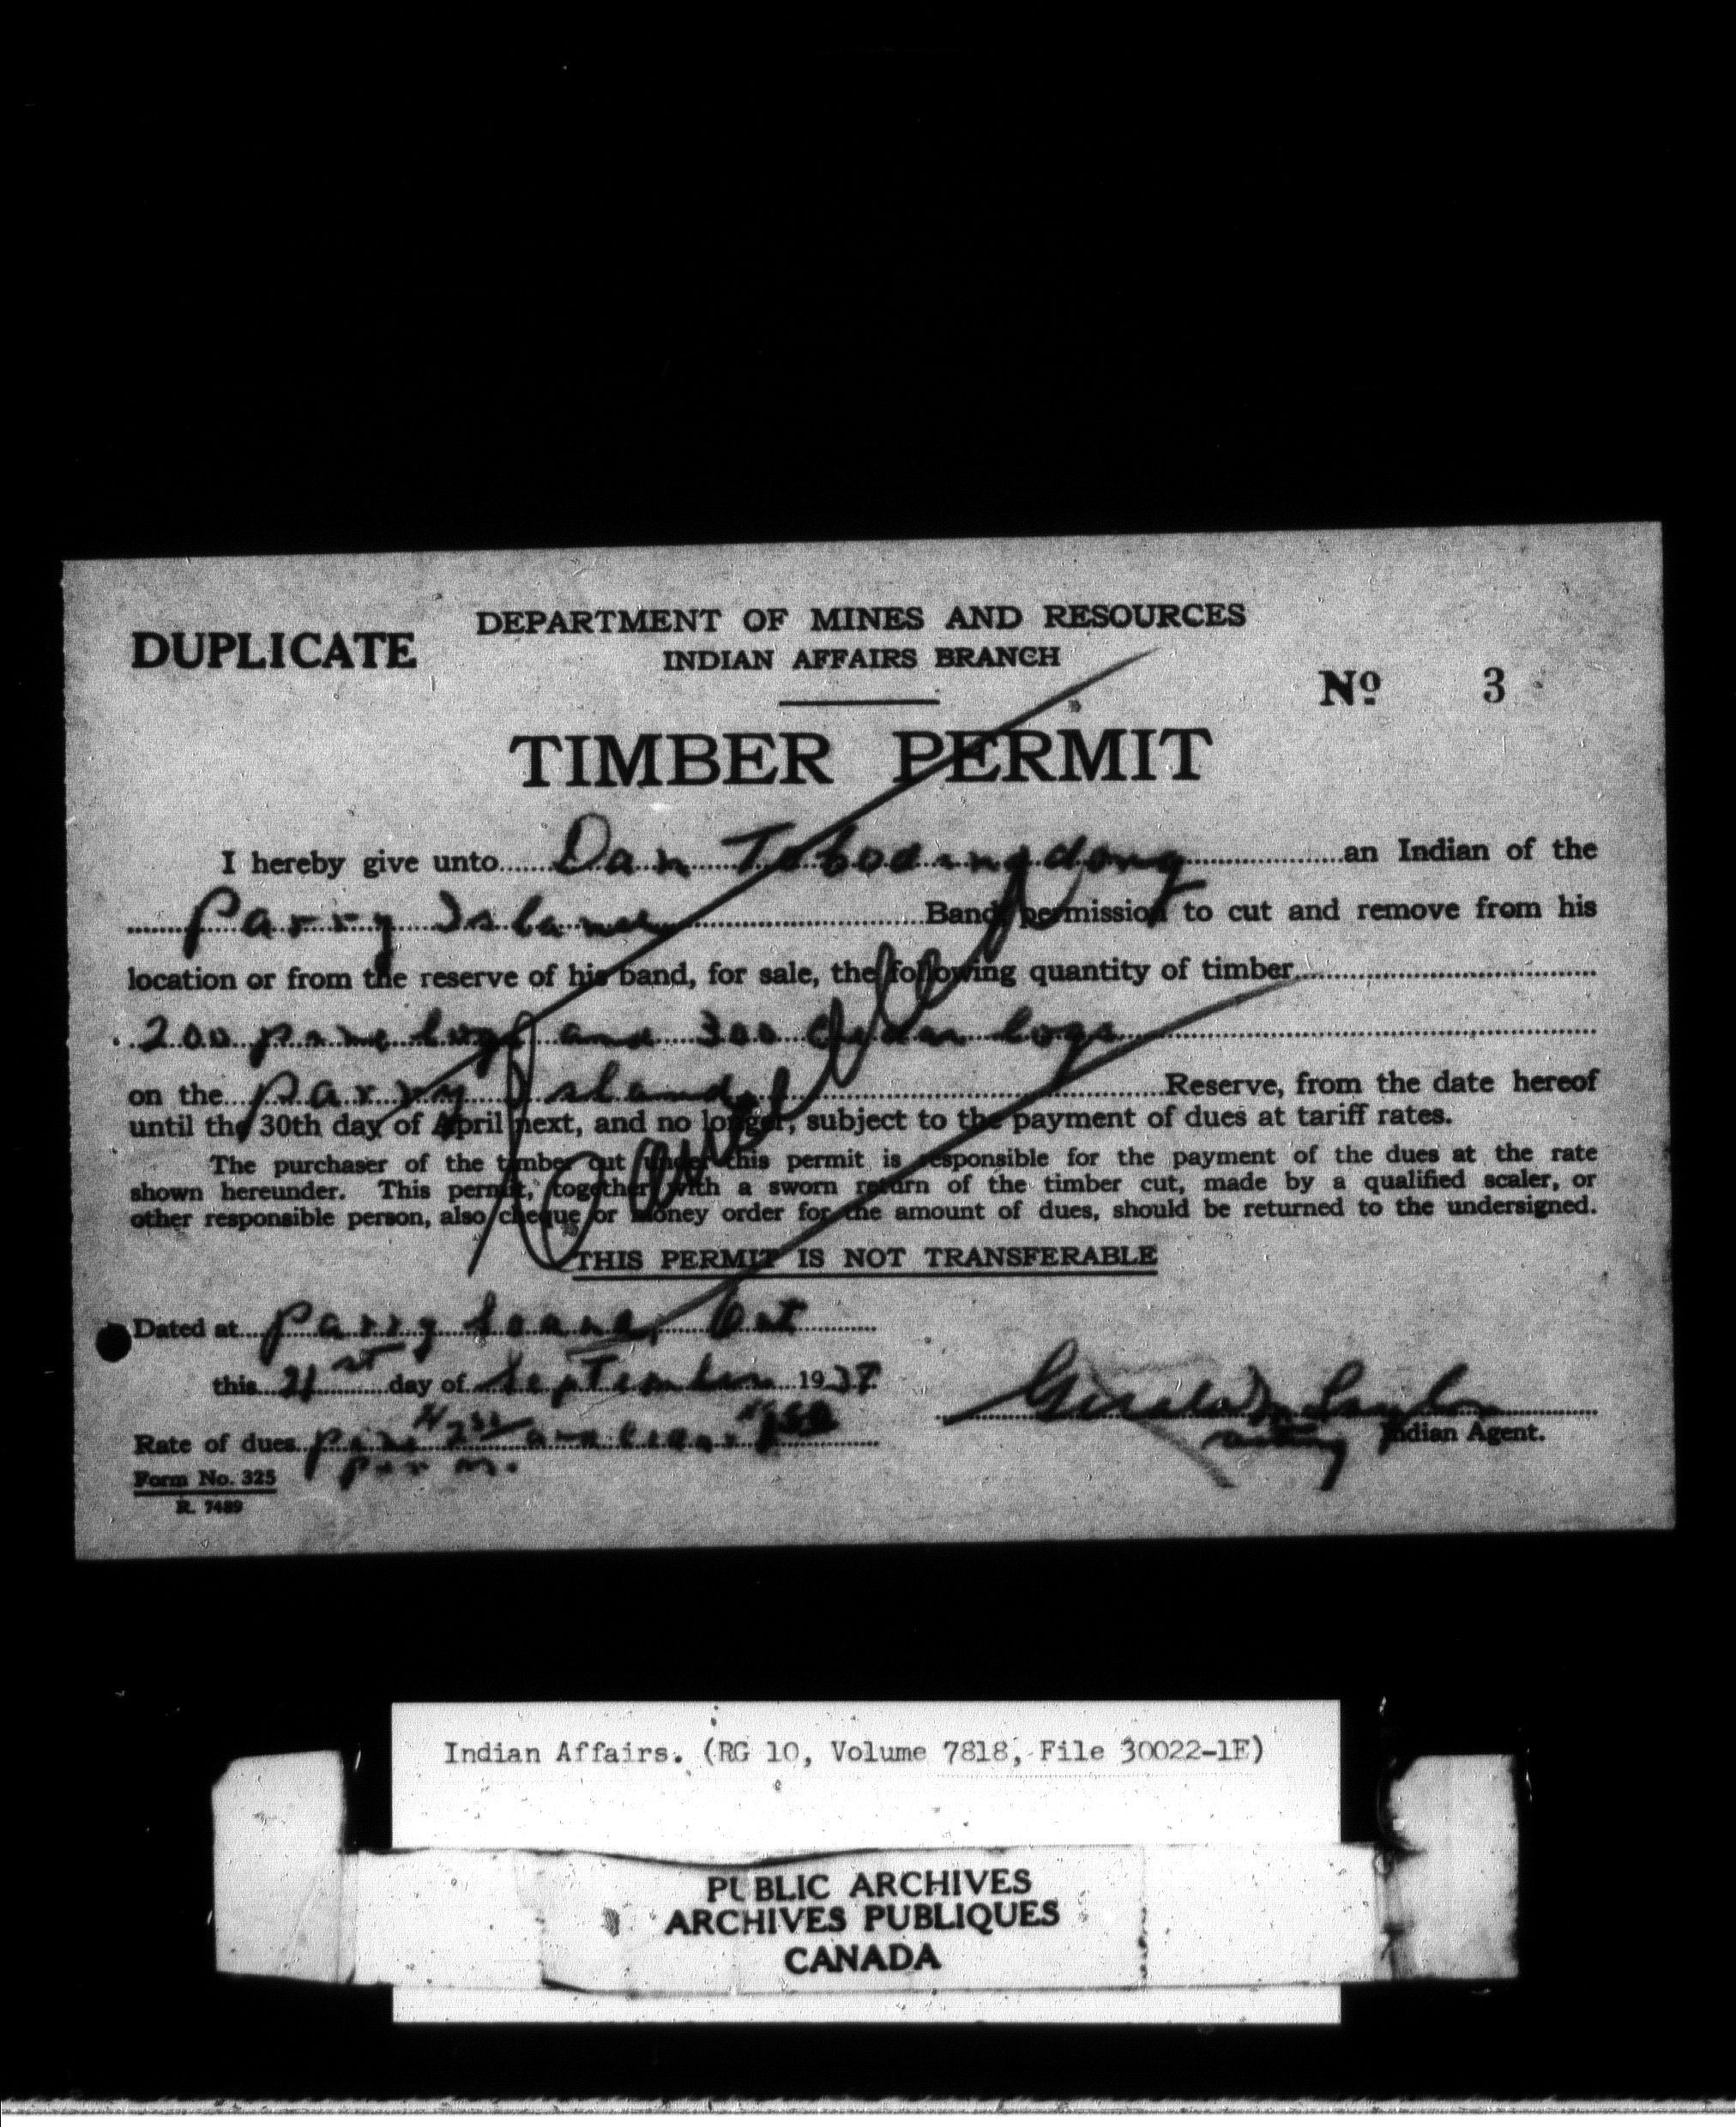 DUPLICATE
DEPARTMENT OF MINES AND RESOURCES
INDIAN AFFAIRS BRANCH
Nº 3
TIMBER PERMIT
I hereby give unto Dan Tobodingdong an Indian of the
Parry Island Band, permission to cut and remove from his
location or from the reserve of his band, for sale, the following quantity of timber
200 pine logs and 300 Cedar logs
on the Parry Island Reserve, from the date hereof
until the 30th day of April next, and no longer, subject to the payment of dues at tariff rates.
The purchaser of the timber cut under this permit is responsible for the payment of the dues at the rate
shown hereunder. This permit, together with a sworn return of the timber cut, made by a qualified scaler, or
other responsible person, also cheque or money order for the amount of dues, should be returned to the undersigned.
Cancelled
THIS PERMIT IS NOT TRANSFERABLE
Dated at Parry Sound, Ont
this 21st day of September 1937
Rate of dues pine
per M.
acting Indian Agent.
Form No. 325
R. 7489
Indian Affairs. (RG 10, Volume 7818, File 30022-1E)
PUBLIC ARCHIVES
ARCHIVES PUBLIQUES
CANADA